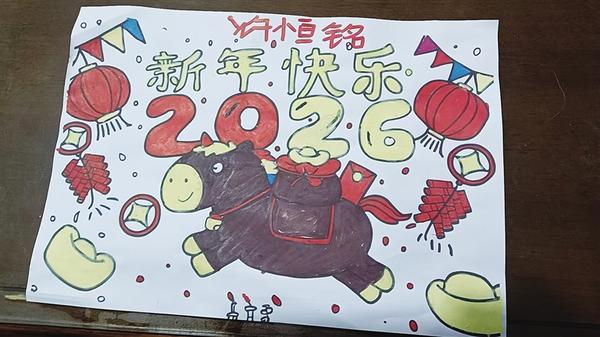 许恒铭
新年快乐
2026